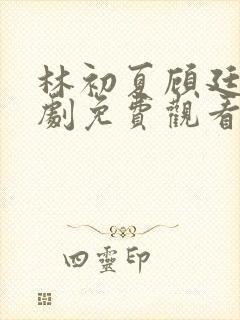 林初夏顾廷
劇免費觀看
四靈印